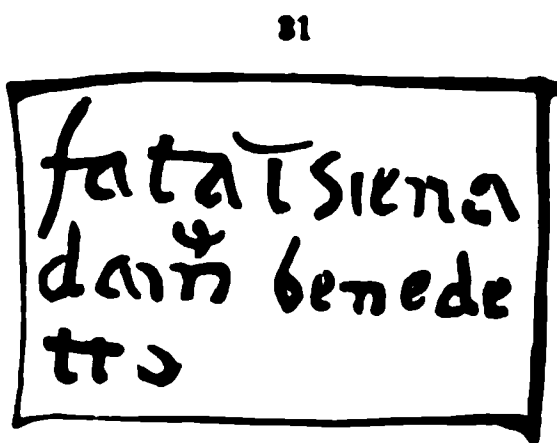 fata ī siena
da m̊ benede
tto